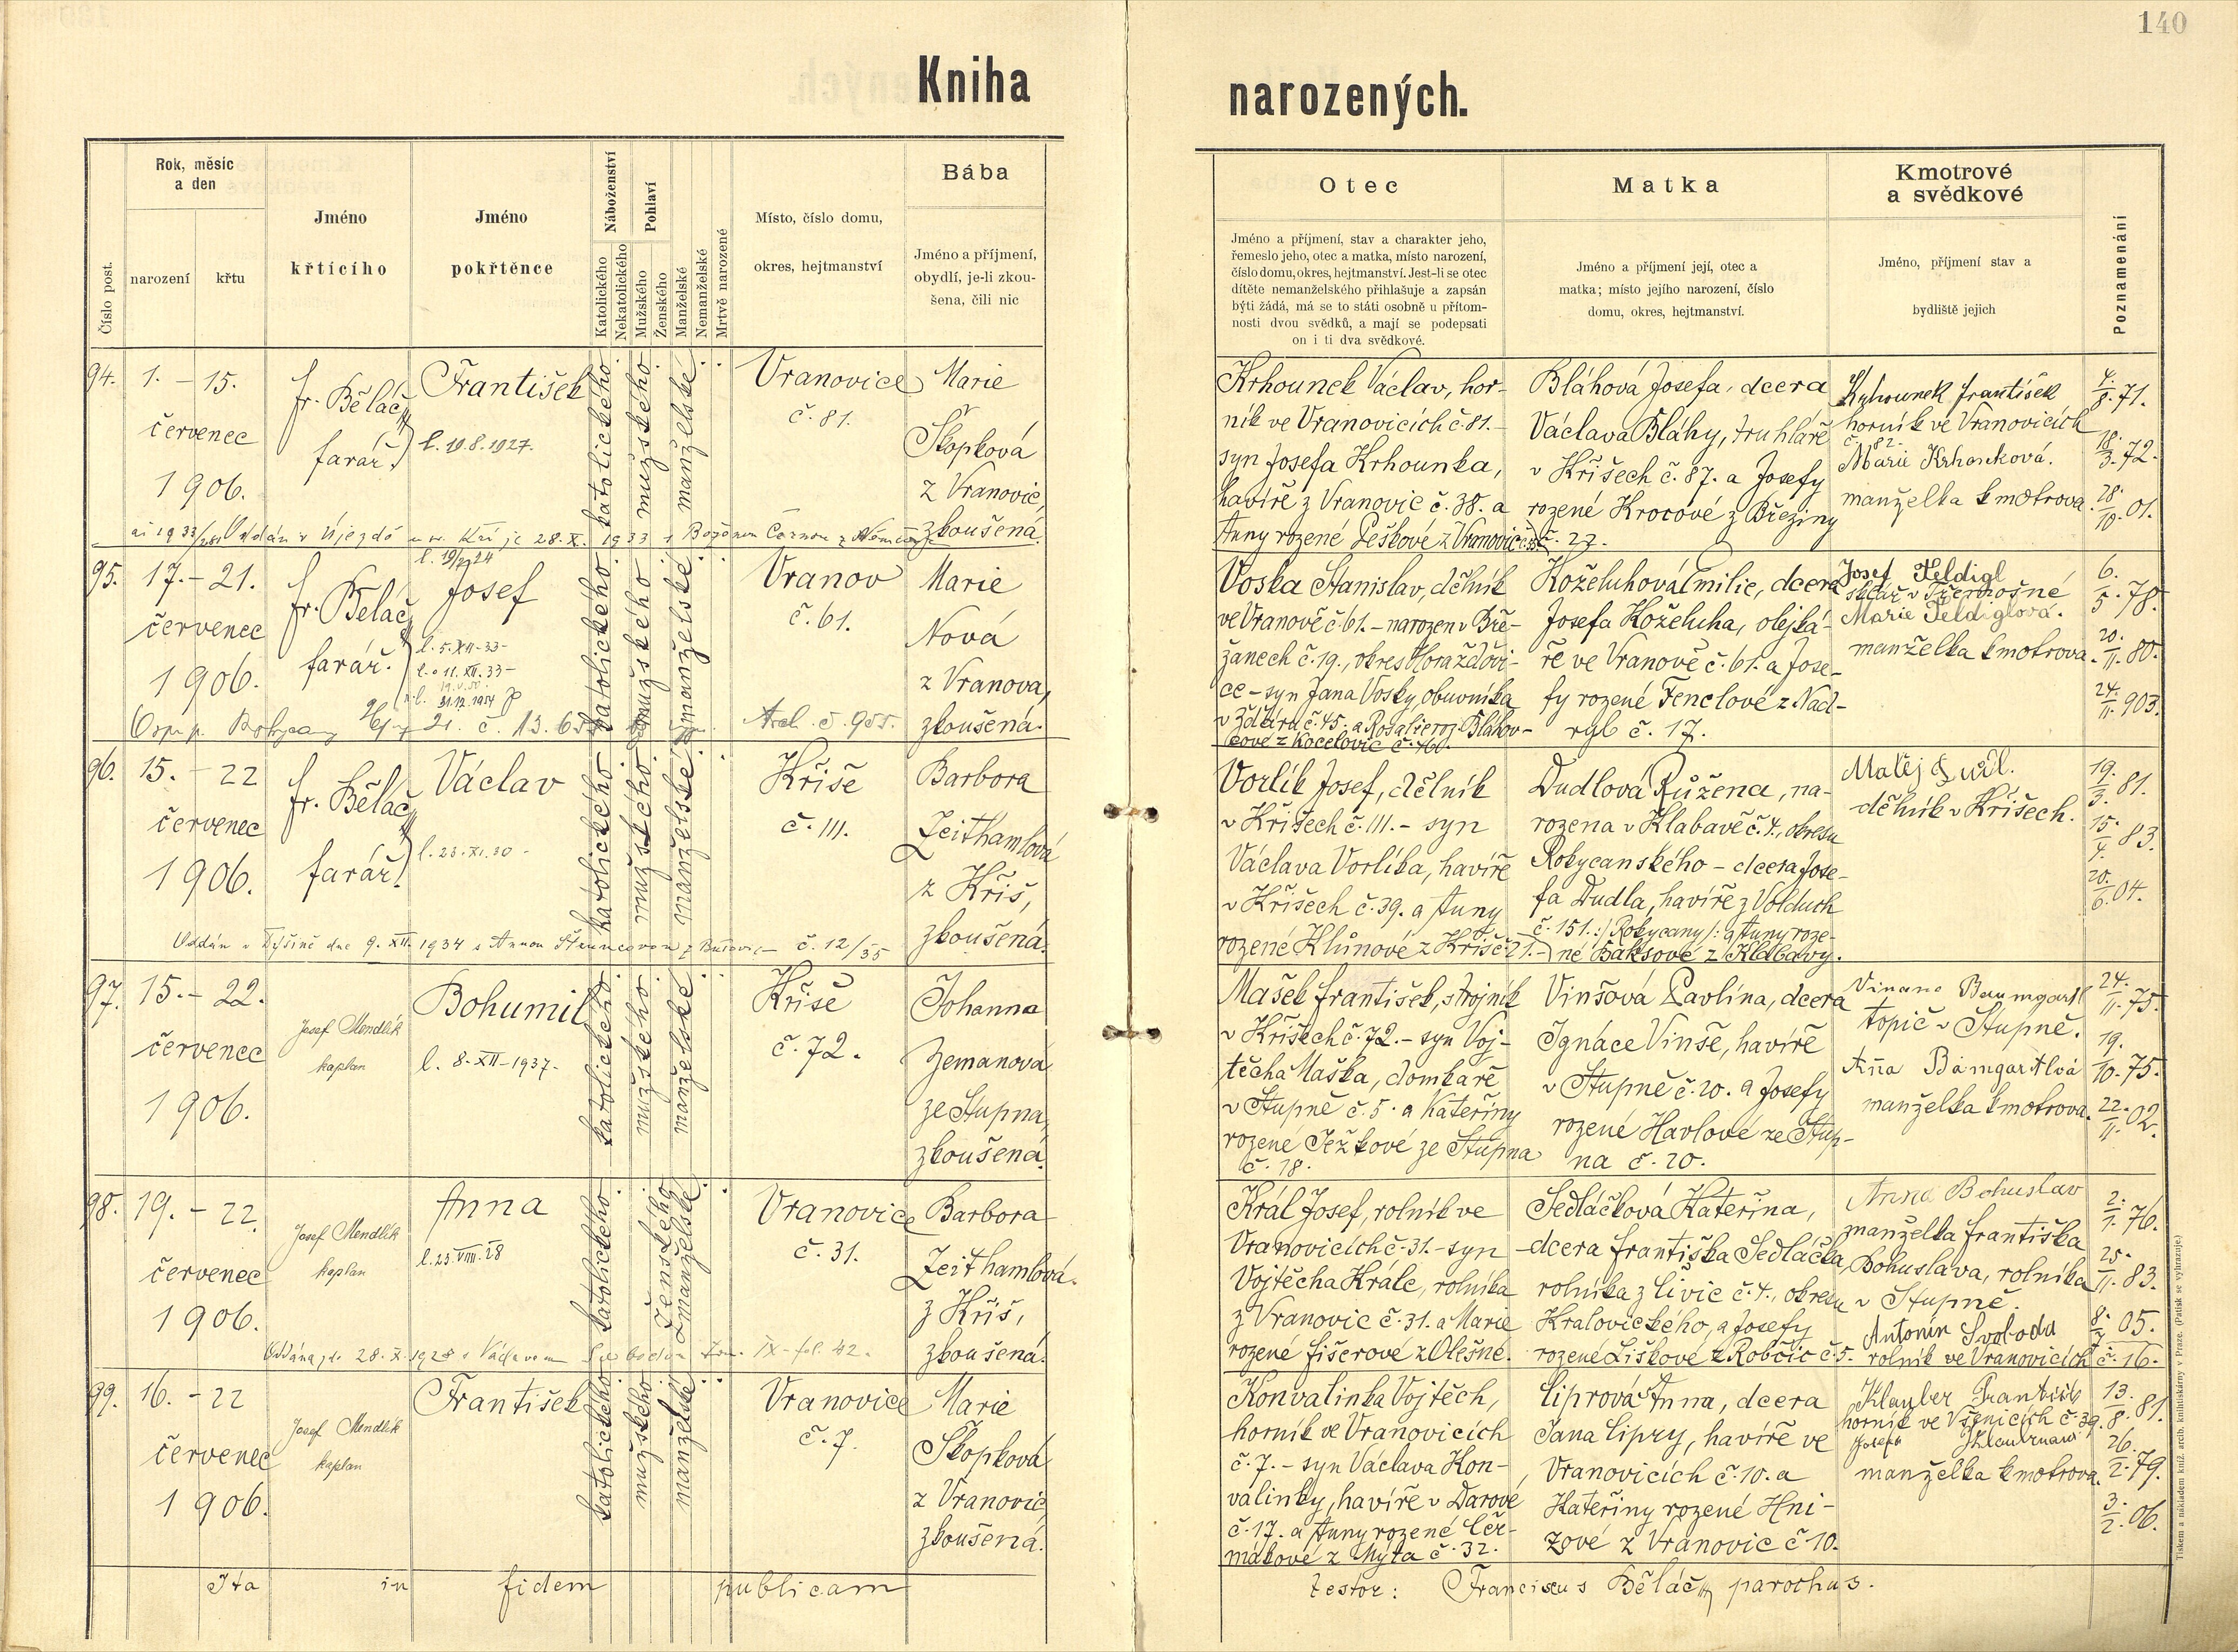 140
Kniha narozených.
Číslo post.
Rok, měsíc
a den
narození
křtu
Jméno
křtícího
Jméno
pokřtěnce
Náboženství
Katolického
Nekatolického
Pohlaví
Mužského
Ženského
Manželské
Nemanželské
Mrtvě narozené
Místo, číslo domu,
okres, hejtmanství
Bába
Jméno a příjmení,
obydlí, je-li zkou-
šena, čili nic
Otec
Jméno a příjmení, stav a charakter jeho,
řemeslo jeho, otec a matka, místo narození,
číslo domu, okres, hejtmanství. Jest-li se otec
dítěte nemanželského přihlašuje a zapsán
býti žádá, má se to státi osobně u přítom-
nosti dvou svědků, a mají se podepsati
on i ti dva svědkové.
Matka
Jméno a příjmení její, otec a
matka; místo jejího narození, číslo
domu, okres, hejtmanství.
Kmotrové
a svědkové
Jméno, příjmení stav a
bydliště jejich
Poznamenání
94.
1. – 15.
červenec
1906.
fr. Běláč
farář.
František
l. 19.8.1927.
katolického
mužského
manželské
Vranovice
č. 81.
Marie
Skopková
z Vranovic,
zkoušená.
28.X. 1933 s Boženou
Krhounek Václav, hor-
ník ve Vranovicích č. 81. –
syn Josefa Krhounka,
havíře z Vranovic č. 38. a
Anny rozené Peškové z Vranovic
Bláhová Josefa, dcera
Václava Bláhy, truhláře
v Křišech č. 87. a Josefy
rozené Krocové z Březiny
č. 27.
Krhounek František
horník ve Vranovicích
č. 82.
Marie Krhounková.
manželka kmotrova.
4./8. 71.
18./3. 72.
28./10. 01.
95.
17. – 21.
červenec
1906.
fr. Běláč
farář.
Josef
l. 5.XII-33-
l. 11.XII.33-
31.12.1954
katolického
mužského
manželské
Vranov
č. 61.
Marie
Nová
z Vranova,
zkoušená.
Voska Stanislav, dělník
ve Vranově č. 61. – narozen v Bře-
žanech č. 19., okres Horažďovi-
ce – syn Jana Vosky, obuvníka
v Žďáru č. 45. a Rosalie roz. Bláhov-
cové z Kocelovic č. 40.
Koželuhová Emilie, dcera
Josefa Koželuha, olejká-
ře ve Vranově č. 61. a Jose-
fy rozené Fenclové z Nad-
ryb č. 17.
Josef Feldigl
sklář v Třemošné
Marie Feldiglová.
manželka kmotrova.
6./5. 78.
20./11. 80.
24./11. 903.
96.
15. – 22
červenec
1906.
fr. Běláč
farář.
Václav
l. 23.XI.30 -
katolického
mužského
manželské
Kříše
č. 111.
Barbora
Zeithamlová
z Kříš,
zkoušená.
Oddán v Dýšině dne 9. XII. 1934 s Annou č. 12/35
Vorlík Josef, dělník
v Křišech č. 111. – syn
Václava Vorlíka, havíře
v Křišech č. 39. a Anny
rozené Klůnové z Kříš č. 21. –
Dudlová Růžena, na-
rozena v Klabavě č. 4., okresu
Rokycanského – dcera Jose-
fa Dudla, havíře z Volduch
č. 151. :/Rokycany/: a Anny roze-
né Baksové z Klabavy.
Matěj Dudl.
dělník v Křišech.
19./3. 81.
15./4. 83.
20./6. 04.
97.
15. – 22.
červenec
1906.
Josef Mendlík
kaplan
Bohumil
l. 8-XII-1937-
katolického
mužského
manželské
Kříše
č. 72.
Johanna
Zemanová
ze Stupna
zkoušená.
Mašek František, strojník
v Křišech č. 72. – syn Voj-
těcha Maška, domkaře
v Stupně č. 5. a Kateřiny
rozené Ježkové ze Stupna
č. 18.
Vinšová Pavlína, dcera
Ignáce Vinše, havíře
v Stupně č. 20. a Josefy
rozené Havlové ze Stup-
na č. 20.
Baumgartl
topič v Stupně.
Anna Bamgartlvá
manželka kmotrova.
24./11. 75.
19./10. 75.
22./11. 02.
98.
19. – 22.
červenec
1906.
Josef Mendlík
kaplan
Anna
l. 23.VIII.28
katolického
ženského
manželské
Vranovice
č. 31.
Barbora
Zeithamlová.
z Kříš,
zkoušená.
Oddána 28. X. 1928 s Václavem IX – fol. 42.
Král Josef, rolník ve
Vranovicích č. 31. – syn
Vojtěcha Krále, rolníka
z Vranovic č. 31. a Marie
rozené Fišerové z Olešné.
Sedláčková Kateřina,
dcera Františka Sedláčka,
rolníka z Livic č. 4., okresu
Kralovického, a Josefy
rozené Liškové z Robčic č. 5.
Anna Bohuslav
manželka Františka
Bohuslava, rolníka
v Stupně.
Antonín Svoboda
rolník ve Vranovicích č. 16.
2./1. 76.
25./11. 83.
8./7. 05.
99.
16. – 22
červenec
1906.
Josef Mendlík
kaplan
František
katolického
mužského
manželské
Vranovice
č. 7.
Marie
Skopková
z Vranovic
zkoušená.
Konvalinka Vojtěch,
horník ve Vranovicích
č. 7. – syn Václava Kon-
valinky, havíře v Darové
č. 17. a Anny rozené Čer-
mákové z Mýta č. 32.
Liprová Anna, dcera
Jana Lipry, havíře ve
Vranovicích č. 10. a
Kateřiny rozené Hni-
zové z Vranovic č 10.
Klauber František
horník ve Všenicích č. 39.
manželka kmotrova.
13./8. 81.
26./2. 79.
3./2. 06.
Ita in fidem publicam
testor: Franciscus Běláč parochus.
Tiskem a nákladem kniž. arcib. knihtiskárny v Praze. (Patisk se vyhrazuje.)